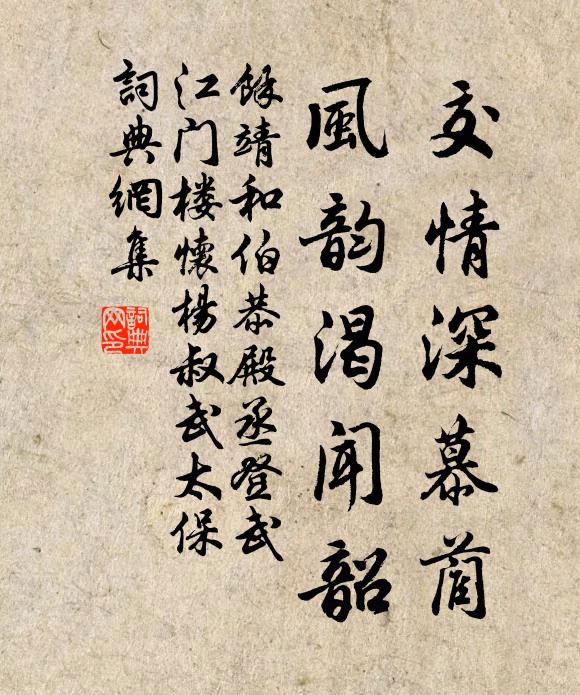 交情深慕蔺
風韵渴聞韶
餘靖和伯恭殿丞登武
江门楼懷楊叔武太保
詞典網集
詞典
网印